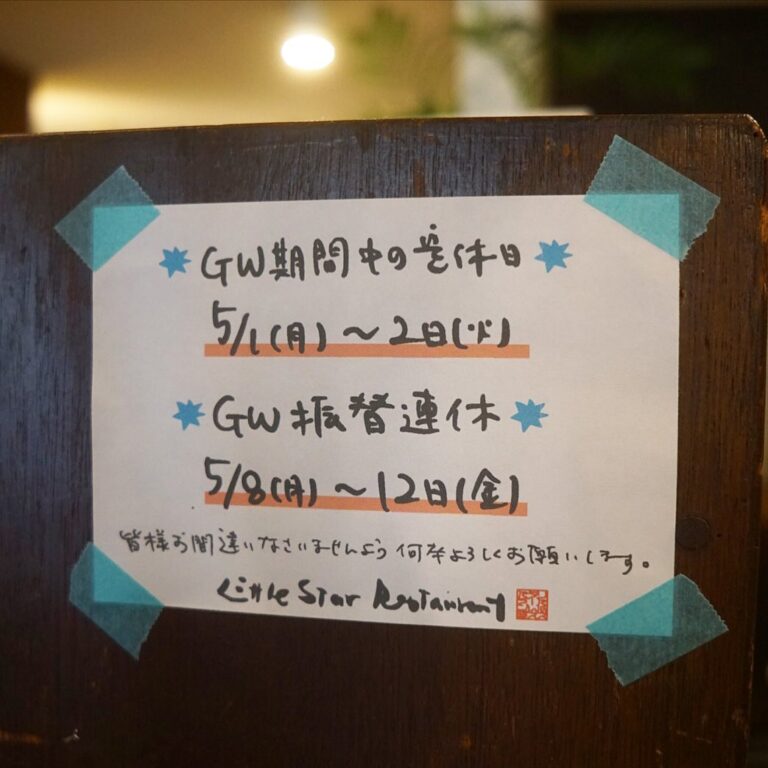 GW期間中の定休日
5/1(月)～2日(火)
GW振替連休
5/8(月)～12日(金)
皆様お間違いなさいませんよう何卒よろしくお願いします。
Little Star Restaurant